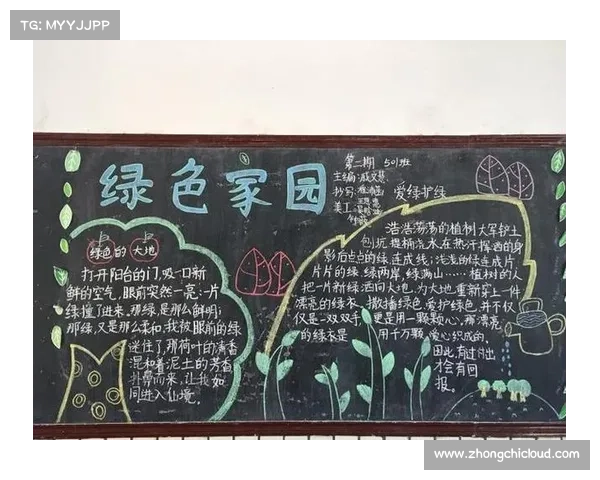 TG: MYYJJPP
绿色家园
第二期 501班
主编:
抄写:
美工:
爱绿护绿
绿色的大地
打开阳台的门,吸一口新
鲜的空气,眼前突然一亮:一片
绿撞了进来,那绿,是那么鲜明;
那绿,又是那么柔和,我被眼前的绿
迷住了,那荷叶的清香
混和着泥土的芳香
扑鼻而来,让我如
同进入仙境。
浩浩荡荡的植树大军铲土
刨坑,提桶浇水,在热汗挥洒的身
影后点点的绿,连成线;浅浅的绿连成片
片片的绿,绿两岸,绿满山……植树的人
把一片新绿洒向大地,为大地重新穿上一件
漂亮的绿衣,撒播绿色,爱护绿色,并不仅
仅是一双双手,更是用一颗颗心,那漂亮
的绿衣是用千万颗爱心织成的。
因此,有过付出
才会有回
报。
www.zhongchicloud.com